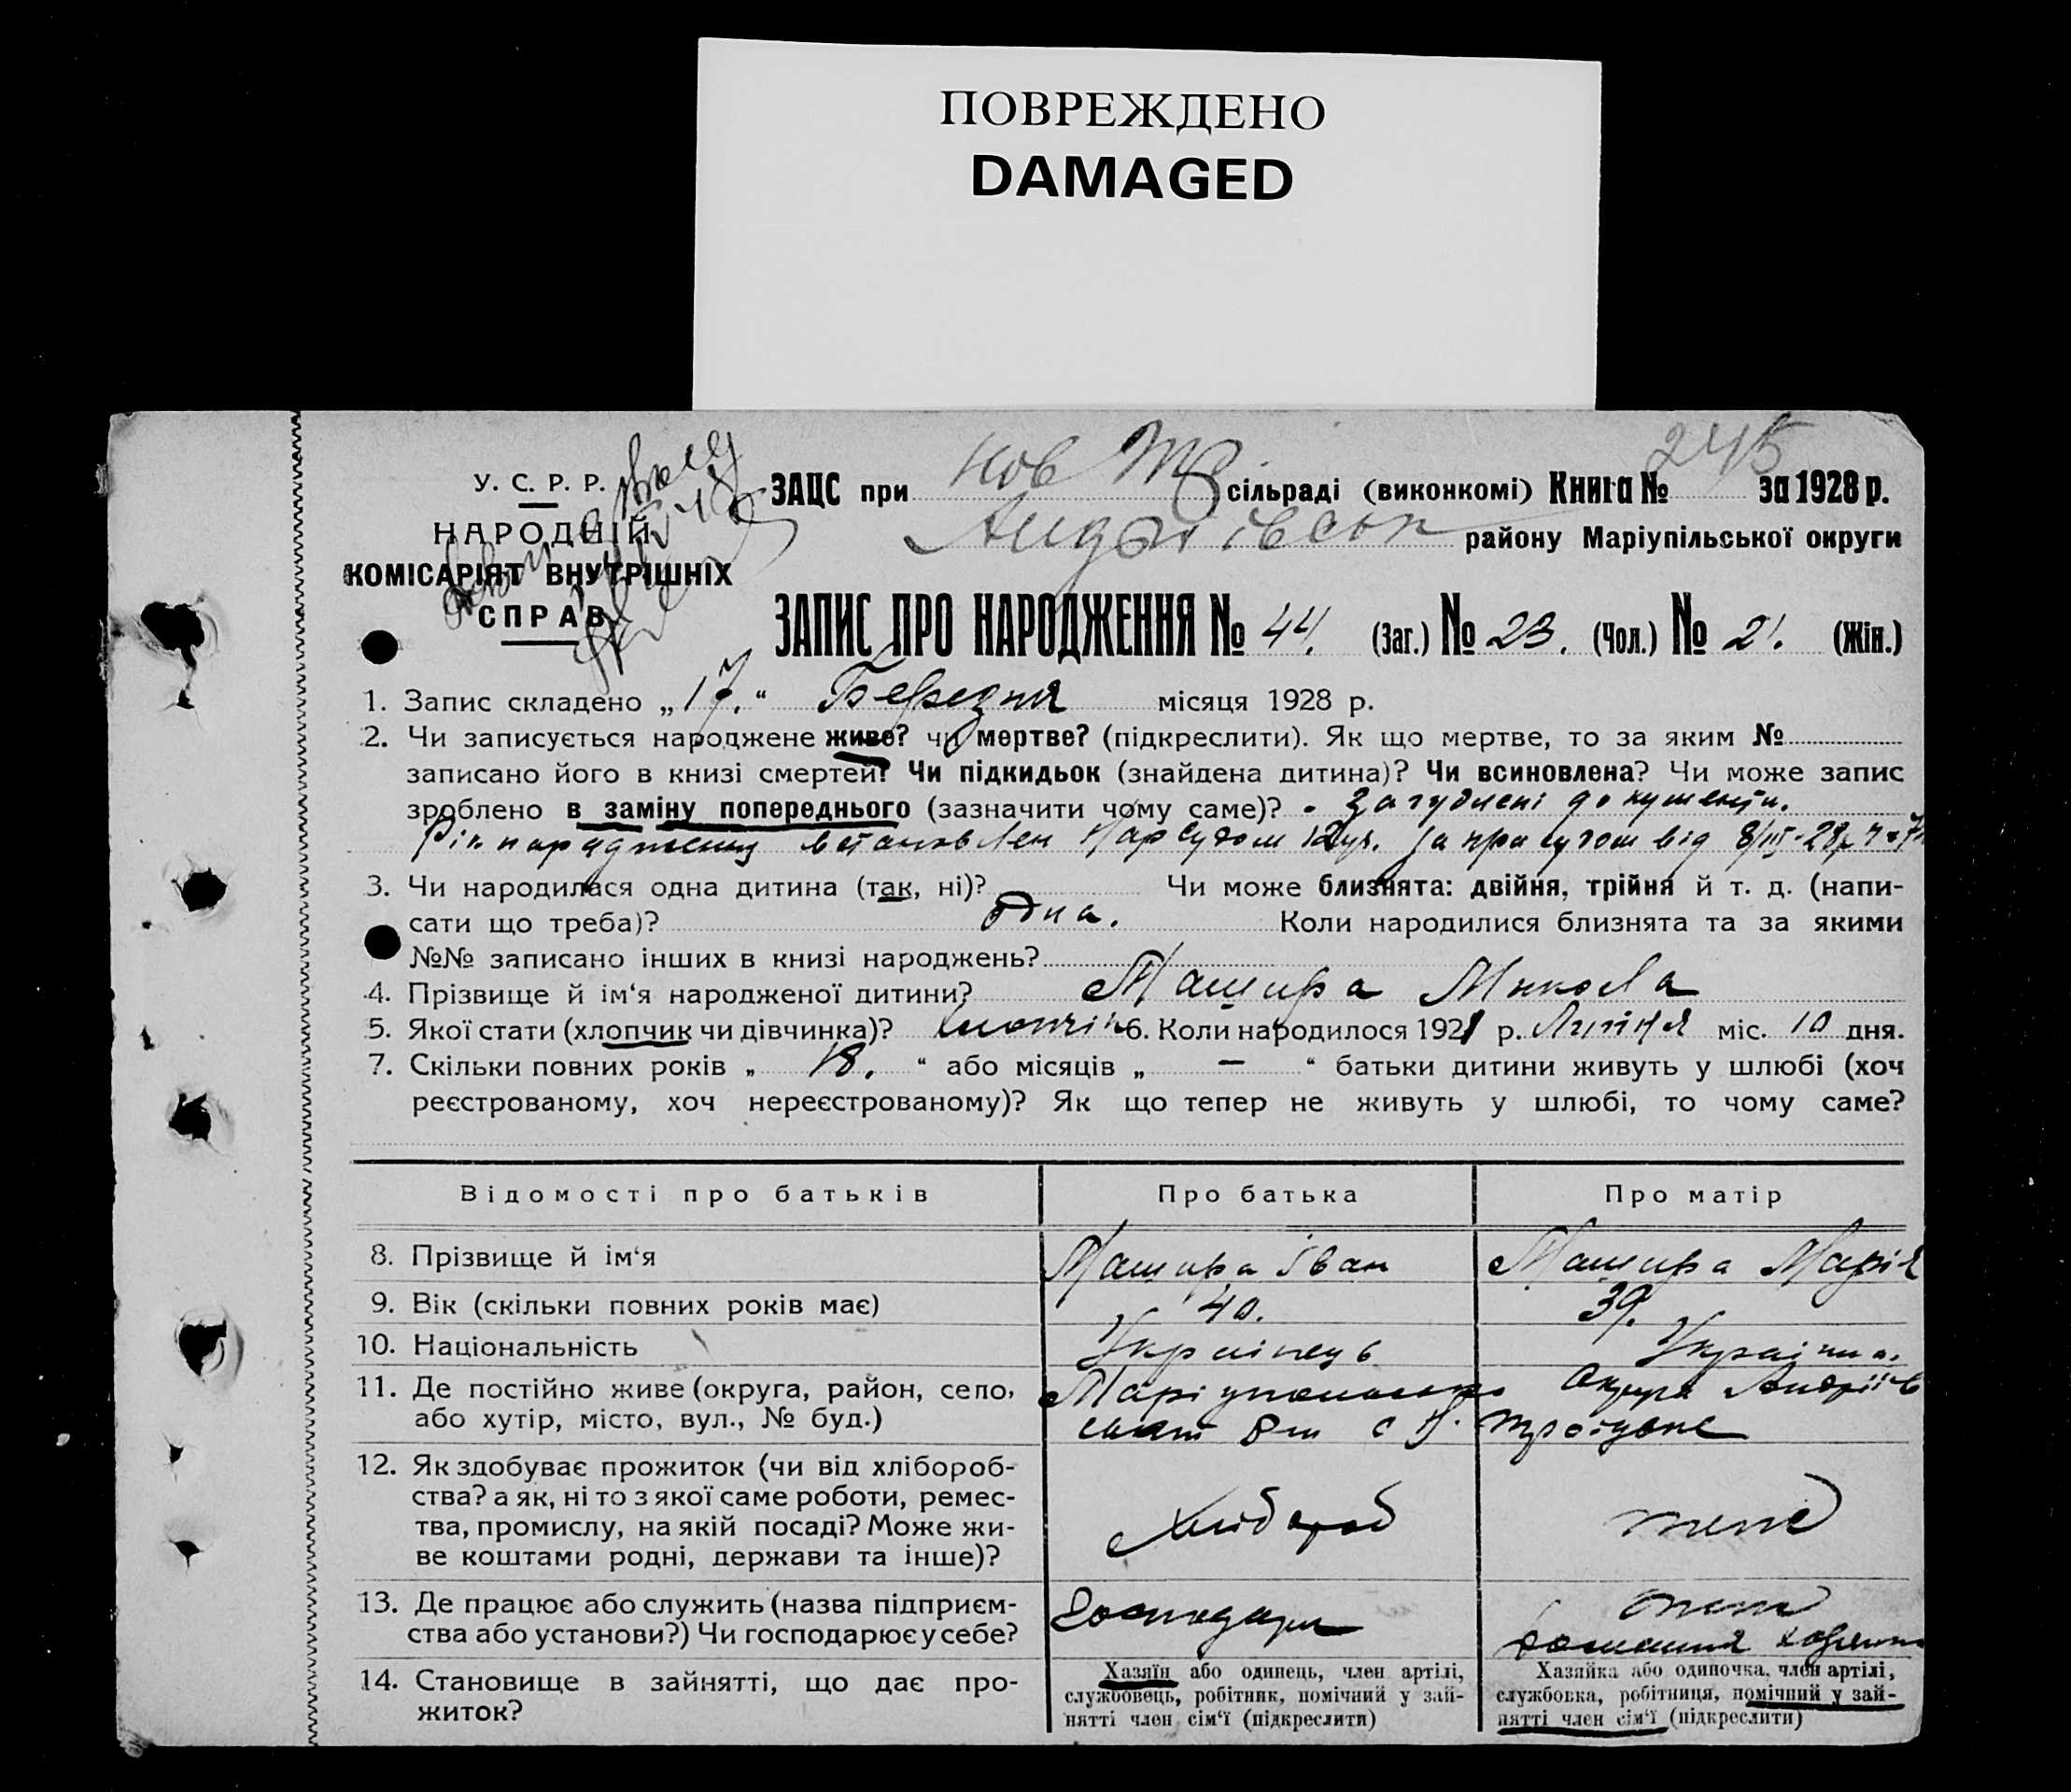 ПОВРЕЖДЕНО
DAMAGED
245
У. С. Р. Р.
НАРОДНІЙ
КОМІСАРІЯТ ВНУТРІШНІХ
СПРАВ
ЗАЦС при Нов Тр сільраді (виконкомі) Книга № за 1928 р.
Андріївськ району Маріупільської округи
ЗАПИС ПРО НАРОДЖЕННЯ № 44. (Заг.) № 23. (Чол.) № 21. (Жін.)
1. Запис складено „17.“ Березня місяця 1928 р.
2. Чи записується народжене живе? чи мертве? (підкреслити). Як що мертве, то за яким №
записано його в книзі смертей? Чи підкидьок (знайдена дитина)? Чи всиновлена? Чи може запис
зроблено в заміну попереднього (зазначити чому саме)? Загублені документи.
Рік народження встановлен Нарсудом 12 уч. за присудом від 8/III-28р.
3. Чи народилася одна дитина (так, ні)? Чи може близнята: двійня, трійня й т. д. (напи-
сати що треба)? Одна. Коли народилися близнята та за якими
№№ записано інших в книзі народжень?
4. Прізвище й ім‘я народженої дитини? Машира Микола
5. Якої стати (хлопчик чи дівчинка)? хлопчік 6. Коли народилося 1921 р. Липня міс. 10 дня.
7. Скільки повних років „ 18. “ або місяців „ — “ батьки дитини живуть у шлюбі (хоч
реєстрованому, хоч нереєстрованому)? Як що тепер не живуть у шлюбі, то чому саме?
Відомості про батьків Про батька Про матір
8. Прізвище й ім‘я Машира Іван Машира Марія
9. Вік (скільки повних років має) 40. 39.
10. Національність Українець Українка.
11. Де постійно живе (округа, район, село, Маріупольсько Округа Андріїв
або хутір, місто, вул., № буд.) ськ с Н. Троїцьке
12. Як здобуває прожиток (чи від хлібороб-
ства? а як, ні то з якої саме роботи, ремес-
тва, промислу, на якій посаді? Може жи-
ве коштами родні, держави та інше)? Хлібороб теж
13. Де працює або служить (назва підприєм-
ства або установи?) Чи господарює у себе? Господарк теж
домашня
14. Становище в зайнятті, що дає про-
житок?
Хазяїн або одинець, член артілі,
службовець, робітник, помічний у зай-
нятті член сім‘ї (підкреслити)
Хазяйка або одиночка, член артілі,
службовка, робітниця, помічний у зай-
нятті член сім‘ї (підкреслити)